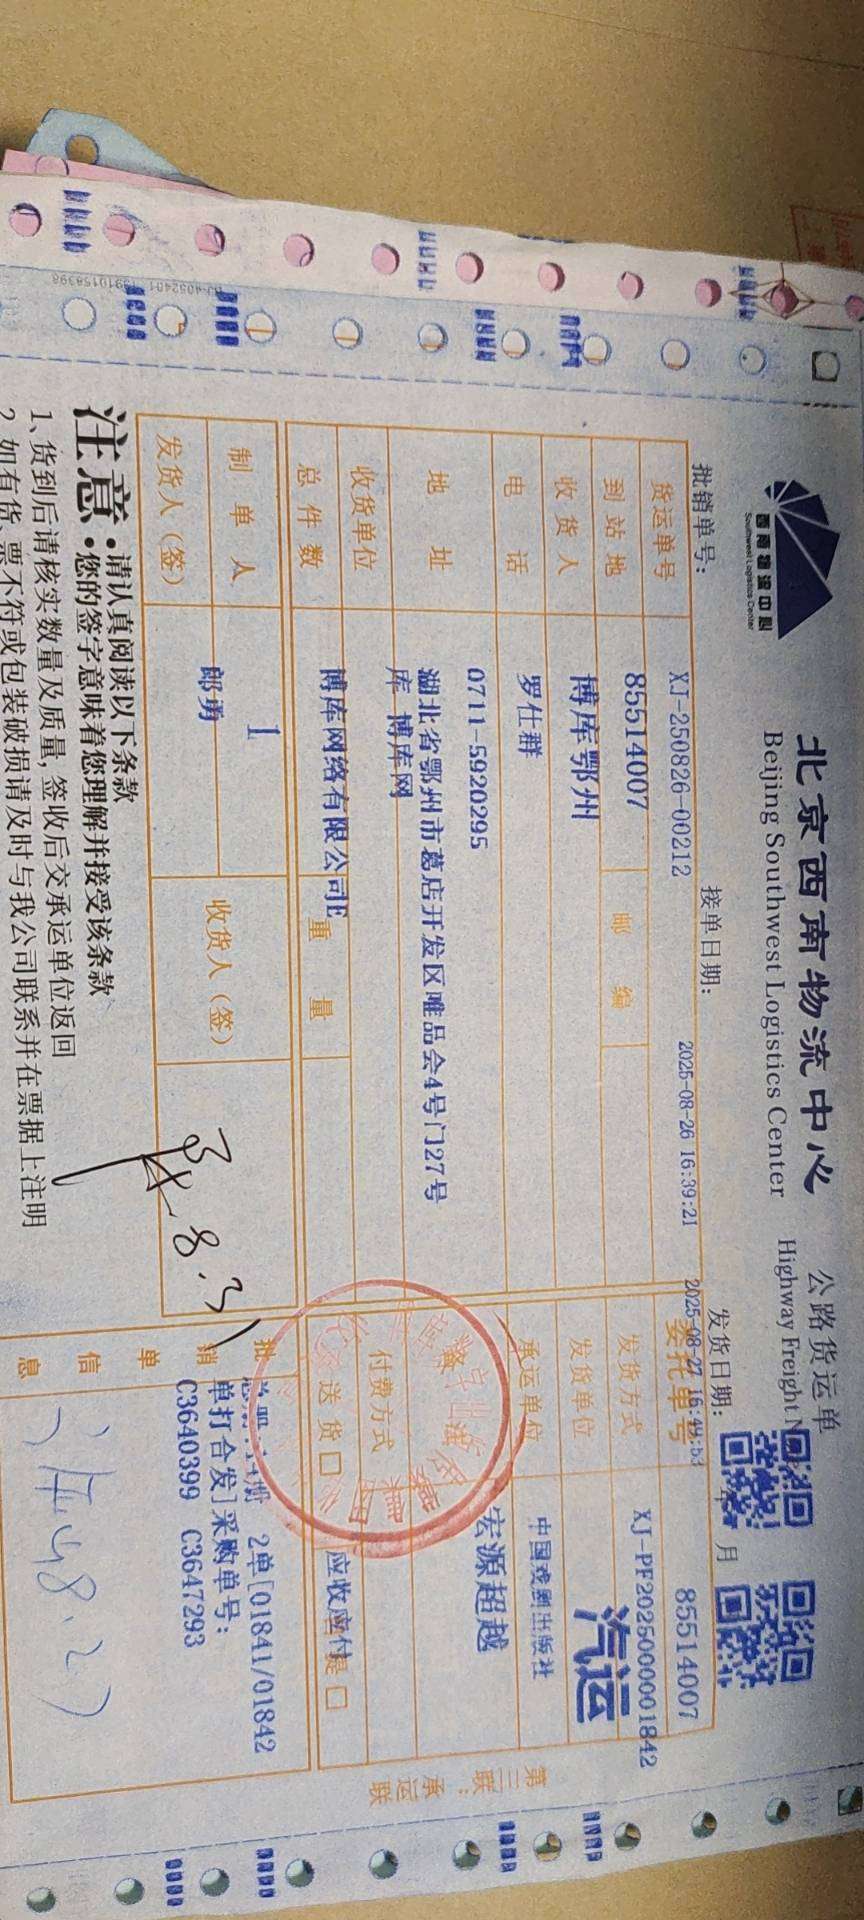 西南物流中心
Southwest Logistics Center
北京西南物流中心
Beijing Southwest Logistics Center
公路货运单
Highway Freight
批销单号:
接单日期:
2025-08-26 16:39:21
发货日期:
年 月
2025-08-27 16:49:53
货运单号
XJ-250826-00212
委托单号
85514007
到站地
85514007
邮编
发货方式
XJ-PF20250000001842
收货人
博库鄂州
发货单位
汽运
电话
罗仕群
承运单位
中国戏剧出版社
0711-5920295
宏源超越
地址
湖北省鄂州市葛店开发区唯品会4号门27号
库 博库网
收货单位
付费方式
总件数
博库网络有限公司E
重量
送货□
应收应付
提□
制单人
1
收货人(签)
批销单信息
2单[01841/01842
单打合发]采购单号:
C3640399 C3647293
发货人(签)
郎勇
8.3
注意
·请认真阅读以下条款
·您的签字意味着您理解并接受该条款
1、货到后请核实数量及质量,签收后交承运单位返回
2、如有货、票不符或包装破损请及时与我公司联系并在票据上注明
第三联:承运联